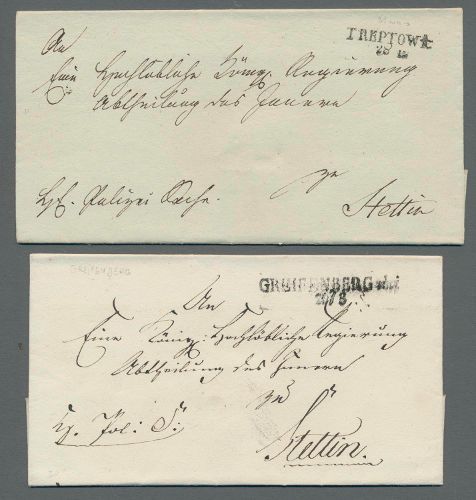 TREPTOW
An
Eine Hochlöbliche Königl. Regierung
Abtheilung des Innern
zu
Stettin
Polizei Sache.
GREIFENBERG
GREIFENBERG
An
Eine Königl: Hochlöbliche Regierung
Abtheilung des Innern
zu
Pol: S:
Stettin.